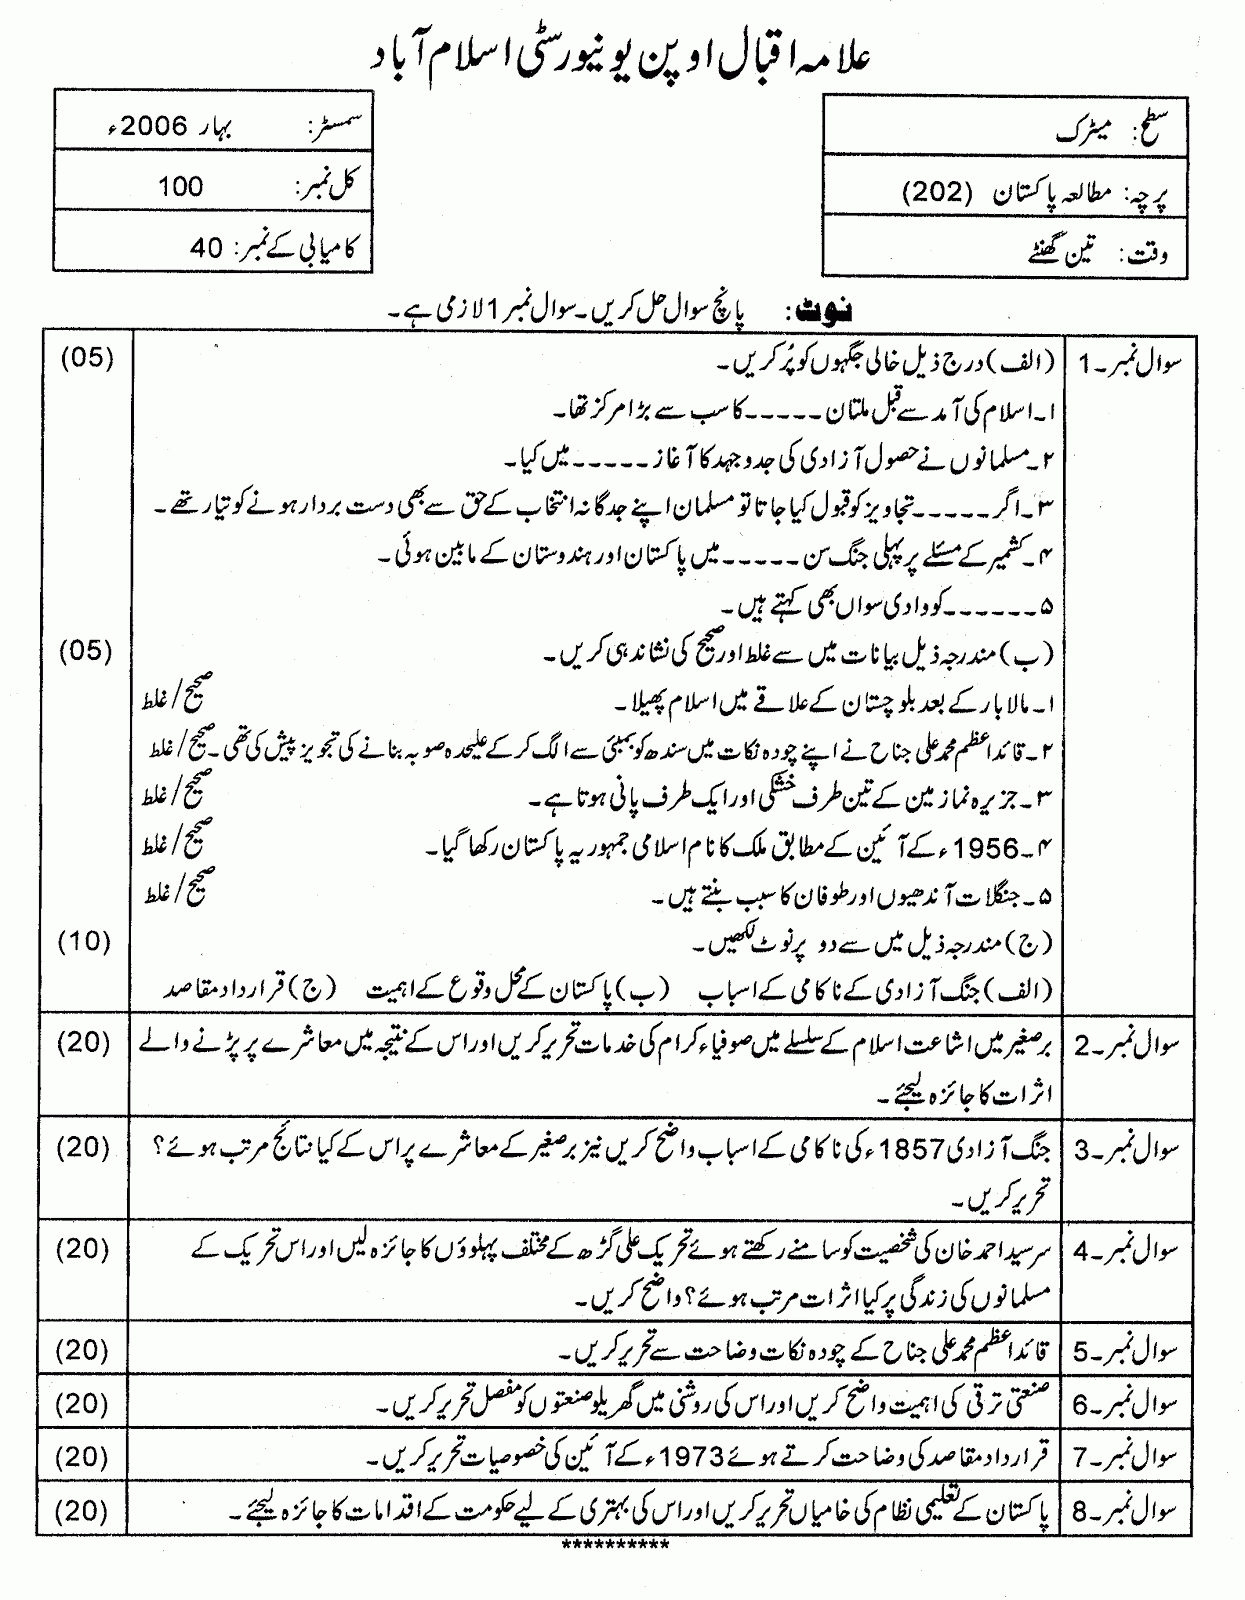 علامہ اقبال اوپن یونیورسٹی اسلام آباد
سطح: میٹرک
پرچہ: مطالعہ پاکستان (202)
وقت: تین گھنٹے
سمسٹر: بہار 2006ء
کل نمبر: 100
کامیابی کے نمبر: 40
نوٹ: پانچ سوال حل کریں۔ سوال نمبر 1 لازمی ہے۔
سوال نمبر۔1 (الف) درج ذیل خالی جگہوں کو پُر کریں۔ (05)
۱۔ اسلام کی آمد سے قبل ملتان ۔۔۔۔۔ کا سب سے بڑا مرکز تھا۔
۲۔ مسلمانوں نے حصول آزادی کی جدوجہد کا آغاز ۔۔۔۔۔ میں کیا۔
۳۔ اگر ۔۔۔۔۔ تجاویز کو قبول کیا جاتا تو مسلمان اپنے جدگانہ انتخاب کے حق سے بھی دست بردار ہونے کو تیار تھے۔
۴۔ کشمیر کے مسئلے پر پہلی جنگ سن ۔۔۔۔۔ میں پاکستان اور ہندوستان کے مابین ہوئی۔
۵۔۔۔۔۔۔ کو وادی سواں بھی کہتے ہیں۔
(ب) مندرجہ ذیل بیانات میں سے غلط اور صحیح کی نشاندہی کریں۔ (05)
۱۔ مالا بار کے بعد بلوچستان کے علاقے میں اسلام پھیلا۔ صحیح/غلط
۲۔ قائداعظم محمد علی جناح نے اپنے چودہ نکات میں سندھ کو بمبئی سے الگ کر کے علیحدہ صوبہ بنانے کی تجویز پیش کی تھی۔ صحیح/غلط
۳۔ جزیرہ نما زمین کے تین طرف خشکی اور ایک طرف پانی ہوتا ہے۔ صحیح/غلط
۴۔ 1956ء کے آئین کے مطابق ملک کا نام اسلامی جمہوریہ پاکستان رکھا گیا۔ صحیح/غلط
۵۔ جنگلات آندھیوں اور طوفان کا سبب بنتے ہیں۔ صحیح/غلط
(ج) مندرجہ ذیل میں سے دو پر نوٹ لکھیں۔ (10)
(الف) جنگ آزادی کے ناکامی کے اسباب (ب) پاکستان کے محل وقوع کے اہمیت (ج) قرارداد مقاصد
سوال نمبر۔2 برصغیر میں اشاعت اسلام کے سلسلے میں صوفیاء کرام کی خدمات تحریر کریں اور اس کے نتیجہ میں معاشرے پر پڑنے والے (20)
اثرات کا جائزہ لیجئے۔
سوال نمبر۔3 جنگ آزادی 1857ء کی ناکامی کے اسباب واضح کریں نیز برصغیر کے معاشرے پر اس کے کیا نتائج مرتب ہوئے؟ (20)
تحریر کریں۔
سوال نمبر۔4 سرسید احمد خان کی شخصیت کو سامنے رکھتے ہوئے تحریک علی گڑھ کے مختلف پہلوؤں کا جائزہ لیں اور اس تحریک کے (20)
مسلمانوں کی زندگی پر کیا اثرات مرتب ہوئے؟ واضح کریں۔
سوال نمبر۔5 قائداعظم محمد علی جناح کے چودہ نکات وضاحت سے تحریر کریں۔ (20)
سوال نمبر۔6 صنعتی ترقی کی اہمیت واضح کریں اور اس کی روشنی میں گھریلو صنعتوں کو مفصل تحریر کریں۔ (20)
سوال نمبر۔7 قرارداد مقاصد کی وضاحت کرتے ہوئے 1973ء کے آئین کی خصوصیات تحریر کریں۔ (20)
سوال نمبر۔8 پاکستان کے تعلیمی نظام کی خامیاں تحریر کریں اور اس کی بہتری کے لیے حکومت کے اقدامات کا جائزہ لیجئے۔ (20)
**********